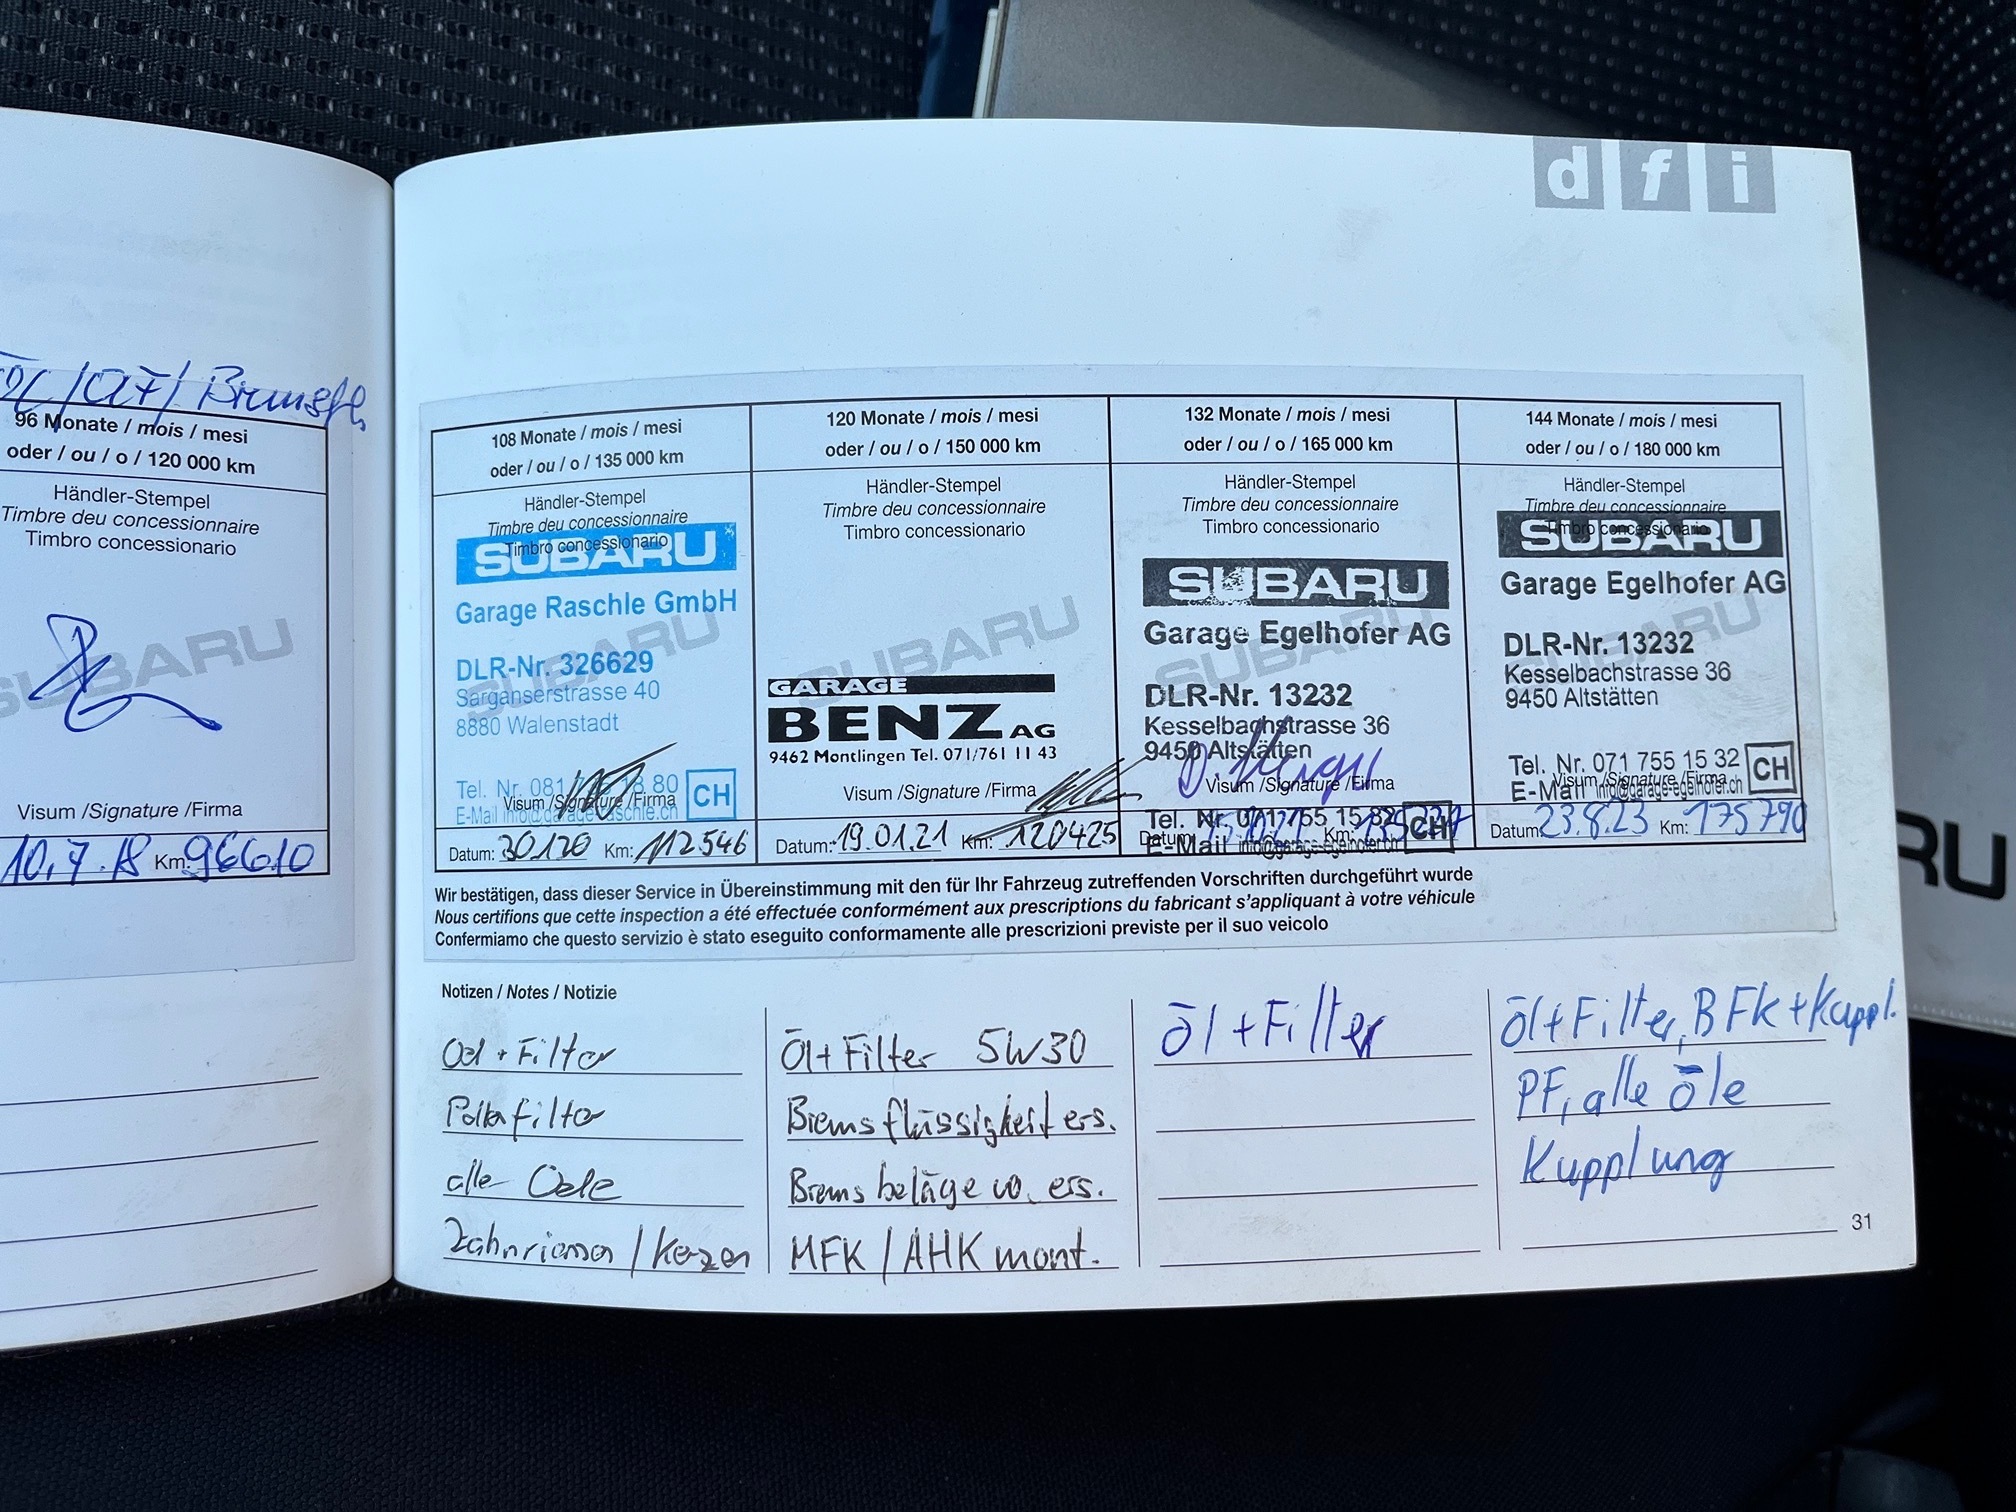 d f i
/ Bremsfl.
96 Monate / mois / mesi
oder / ou / o / 120 000 km
Händler-Stempel
Timbre deu concessionnaire
Timbro concessionario
SUBARU
Visum /Signature /Firma
10.7.18 Km: 96610
108 Monate / mois / mesi
oder / ou / o / 135 000 km
Händler-Stempel
Timbre deu concessionnaire
Timbro concessionario
SUBARU
Garage Raschle GmbH
SUBARU
DLR-Nr. 326629
Sarganserstrasse 40
8880 Walenstadt
Tel. Nr. 081 80
CH
Visum /Signature /Firma
E-Mail
Datum: 30.1.20 Km: 112546
120 Monate / mois / mesi
oder / ou / o / 150 000 km
Händler-Stempel
Timbre deu concessionnaire
Timbro concessionario
SUBARU
GARAGE
BENZ AG
9462 Montlingen Tel. 071/761 11 43
Visum /Signature /Firma
Datum: 19.01.21 Km: 120425
132 Monate / mois / mesi
oder / ou / o / 165 000 km
Händler-Stempel
Timbre deu concessionnaire
Timbro concessionario
SUBARU
Garage Egelhofer AG
SUBARU
DLR-Nr. 13232
Kesselbachstrasse 36
9450 Altstätten
Visum /Signature /Firma
Tel. Nr. 071 755 15 32
CH
Datum: Km:
E-Mail info@garage-egelhofer.ch
144 Monate / mois / mesi
oder / ou / o / 180 000 km
Händler-Stempel
Timbre deu concessionnaire
Timbro concessionario
SUBARU
Garage Egelhofer AG
SUBARU
DLR-Nr. 13232
Kesselbachstrasse 36
9450 Altstätten
Tel. Nr. 071 755 15 32
CH
Visum /Signature /Firma
E-Mail info@garage-egelhofer.ch
Datum: 23.8.23 Km: 175790
Wir bestätigen, dass dieser Service in Übereinstimmung mit den für Ihr Fahrzeug zutreffenden Vorschriften durchgeführt wurde
Nous certifions que cette inspection a été effectuée conformément aux prescriptions du fabricant s'appliquant à votre véhicule
Confermiamo che questo servizio è stato eseguito conformamente alle prescrizioni previste per il suo veicolo
Notizen / Notes / Notizie
Oel + Filter
Pollenfilter
alle Oele
Zahnriemen / Kerzen
Öl + Filter 5W30
Bremsflüssigkeit ers.
Bremsbeläge vo. ers.
MFK / AHK mont.
Öl + Filter
Öl + Filter, BFk + Kuppl.
PF, alle Öle
Kupplung
31
RU